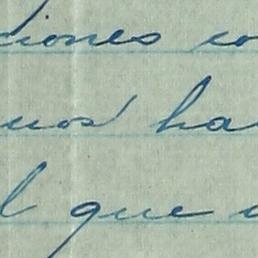 ciones co
uos ha
l que